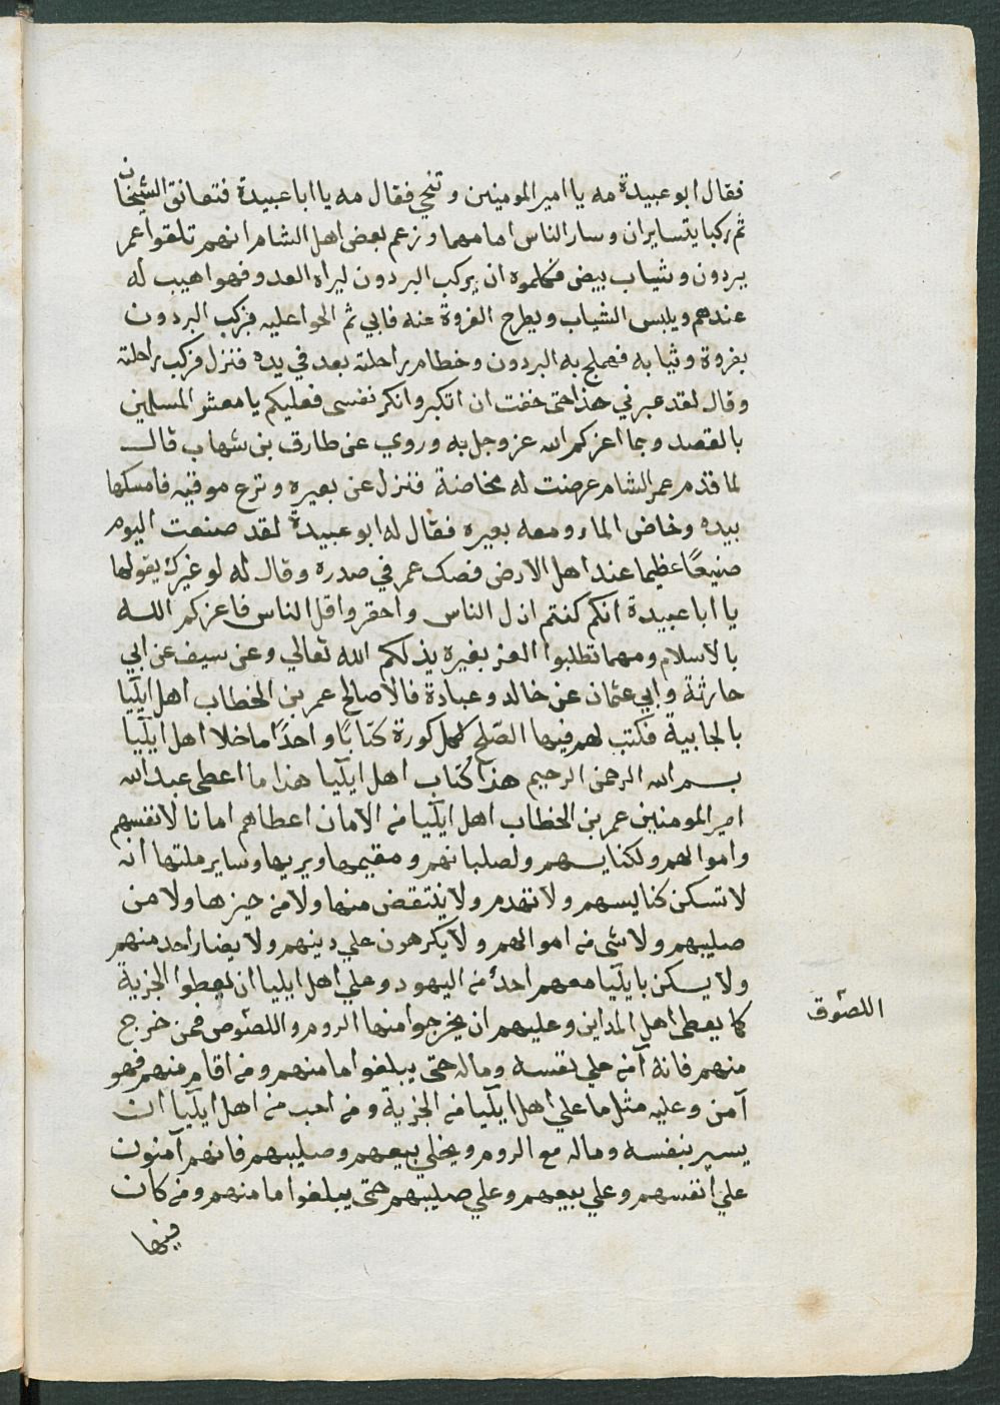 فقال ابو عبيدة مه يا امير المومنين وتنحي فقال مه يا ابا عبيدة فتعانق الشيخان
ثم ركبا يتسايران وسار الناس امامهما وزعم بعض اهل الشام انهم تلقوا عمر
ببردون وثياب بيض فكلموه ان يركب البردون ليراه العدو فهو اهيب له
عندهم ويلبس الثياب ويطرح الفروة عنه فابي ثم الحوا عليه فركب البردون
بفروة وثيابه فهملج به البردون وخطام راحلته بعد في يده فنزل فركب راحلته
وقال لقد غير في هذا حتى خفت ان اتكبر وانكر نفسى فعليكم يا معشر المسلمين
بالقصد وبما اعزكم الله عز وجل به وروي عن طارق بن شهاب قال
لما قدم عمر الشام عرضت له مخاضة فنزل عن بعيره ونزع موقيه فامسكها
بيده وخاض الماء ومعه بعيره فقال له ابو عبيدة لقد صنعت اليوم
صنيعًا عظيما عند اهل الارض فصك عمر في صدره وقال له لو غيرك يقولها
يا ابا عبيدة انكم كنتم اذل الناس واحقر واقل الناس فاعزكم الله
بالاسلام ومهما تطلبوا العز بغيره يذلكم الله تعالي وعن سيف عن ابي
حارثة وابي عثمان عن خالد وعبادة قالا صالح عمر بن الخطاب اهل ايليا
بالجابية فكتب لهم فيها الصلح لكل كورة كتابًا واحدًا ما خلا اهل ايليا
بسم الله الرحمن الرحيم هذا كتاب اهل ايليا هذا ما اعطى عبد الله
امير المومنين عمر بن الخطاب اهل ايليا من الامان اعطاهم امانا لانفسهم
واموالهم ولكنايسهم ولصلبانهم ومقيمها وبريها وساير ملتها انه
لا تسكن كنايسهم ولا تهدم ولا ينتقض منها ولا من حيزها ولا من
صليبهم ولا شى من اموالهم ولا يكرهون علي دينهم ولا يضار احد منهم
ولا يسكن بايليا معهم احد من اليهود وعلي اهل ايليا ان يعطوا الجزية
كما يعطى اهل المداين وعليهم ان يخرجوا منها الروم واللصوص فمن خرج
اللصوق
منهم فانه آمن علي نفسه وماله حتى يبلغوا مامنهم ومن اقام منهم فهو
آمن وعليه مثل ما علي اهل ايليا من الجزية ومن احب من اهل ايليا ان
يسير بنفسه وماله مع الروم ويخلي بيعهم وصليبهم فانهم آمنون
علي انفسهم وعلي بيعهم وعلي صليبهم حتى يبلغوا مامنهم ومن كان
فيها